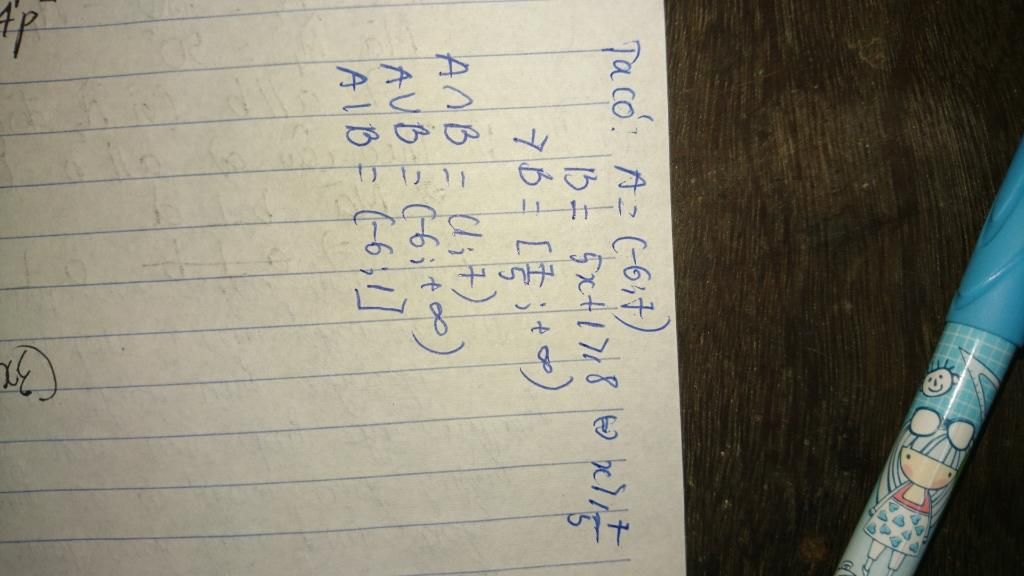 Ta có: A = (-6;7)
B = 5x+1 ⩾ 8 ⇔ x ⩾ 7/5
→ B = [7/5; +∞)
A ∩ B = (1; 7)
A ∪ B = (-6; +∞)
A \ B = (-6; 1]
(3x